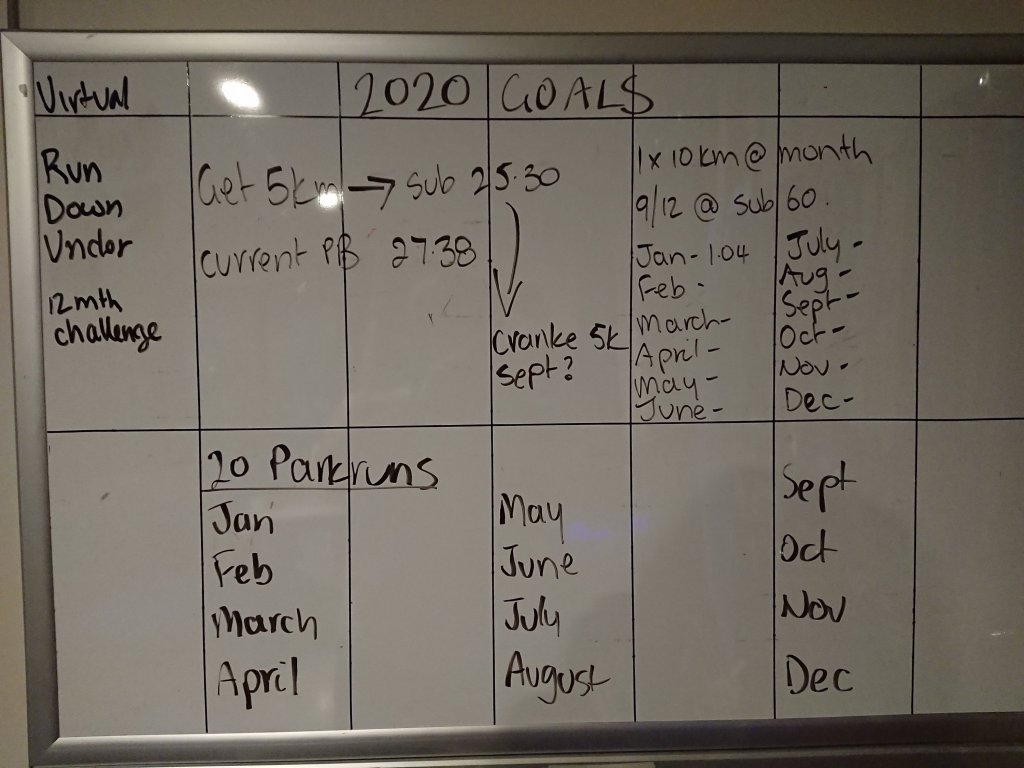 Virtual
2020 GOALS
Run
Down
Under
12 mth
challenge
Get 5km → sub 25.30
current PB 27.38
Cranke 5k
Sept?
1 x 10 km @ month
9/12 @ sub 60.
Jan - 1.04
Feb -
March -
April -
May -
June -
July -
Aug -
Sept -
Oct -
Nov -
Dec -
20 Parkruns
Jan
Feb
March
April
May
June
July
August
Sept
Oct
Nov
Dec